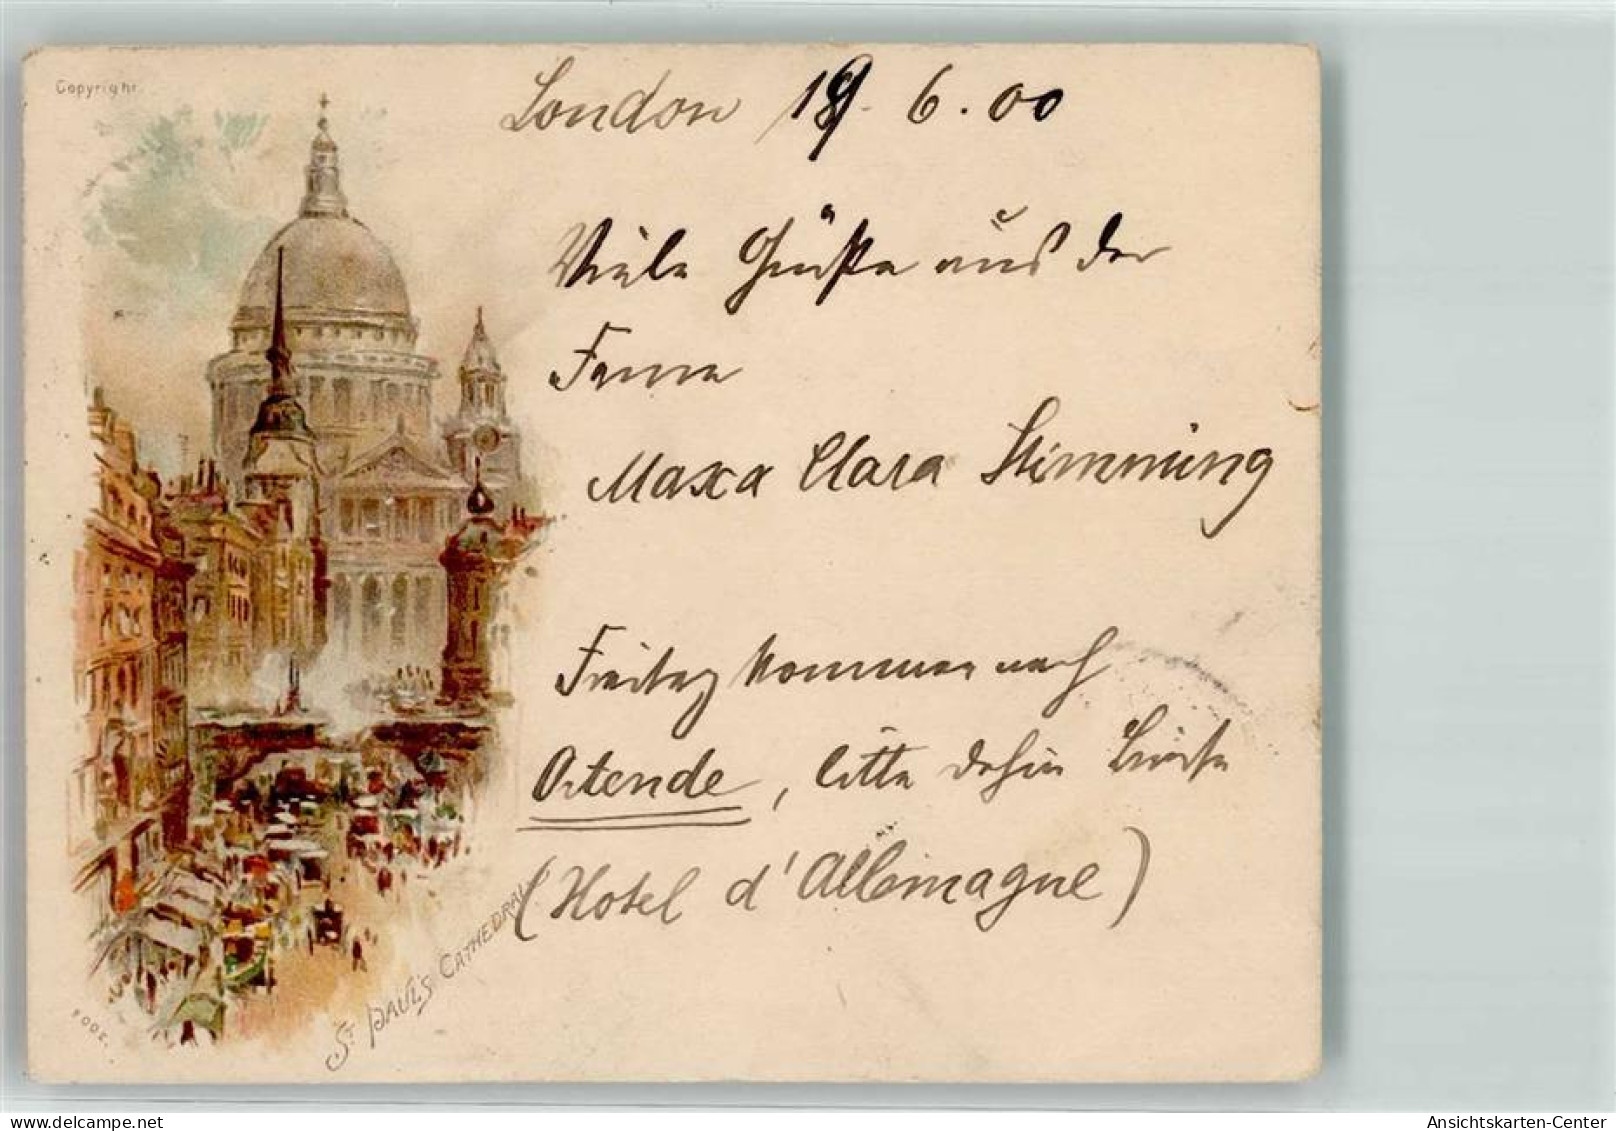 Copyright
London 19. 6. 00
Viele Grüße aus der
Ferne
Maxa Clara Stimming
Freitag kommen nach
Ostende, bitte dahin Briefe
(Hotel d'Allemagne)
ST PAUL'S CATHEDRAL
Ansichtskarten-Center
www.delcampe.net